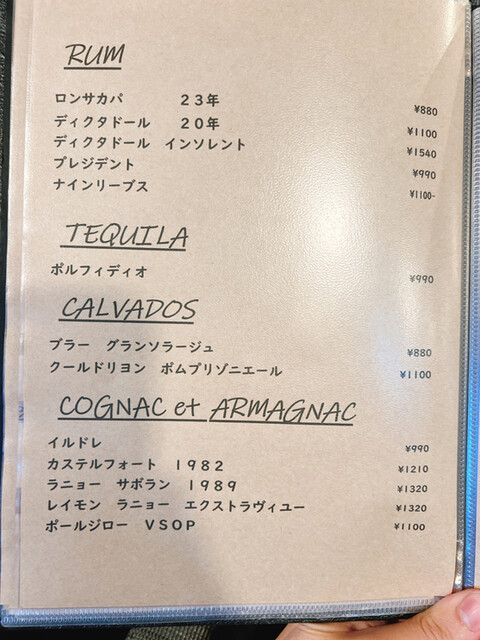 RUM
ロンサカパ　２３年 ¥880
ディクタドール　２０年 ¥1100
ディクタドール　インソレント ¥1540
プレジデント ¥990
ナインリーブス ¥1100-
TEQUILA
ポルフィディオ ¥990
CALVADOS
ブラー　グランソラージュ ¥880
クールドリヨン　ポムプリゾニエール ¥1100
COGNAC et ARMAGNAC
イルドレ ¥990
カステルフォート　１９８２ ¥1210
ラニョー　サボラン　１９８９ ¥1320
レイモン　ラニョー　エクストラヴィユー ¥1320
ポールジロー　ＶＳＯＰ ¥1100